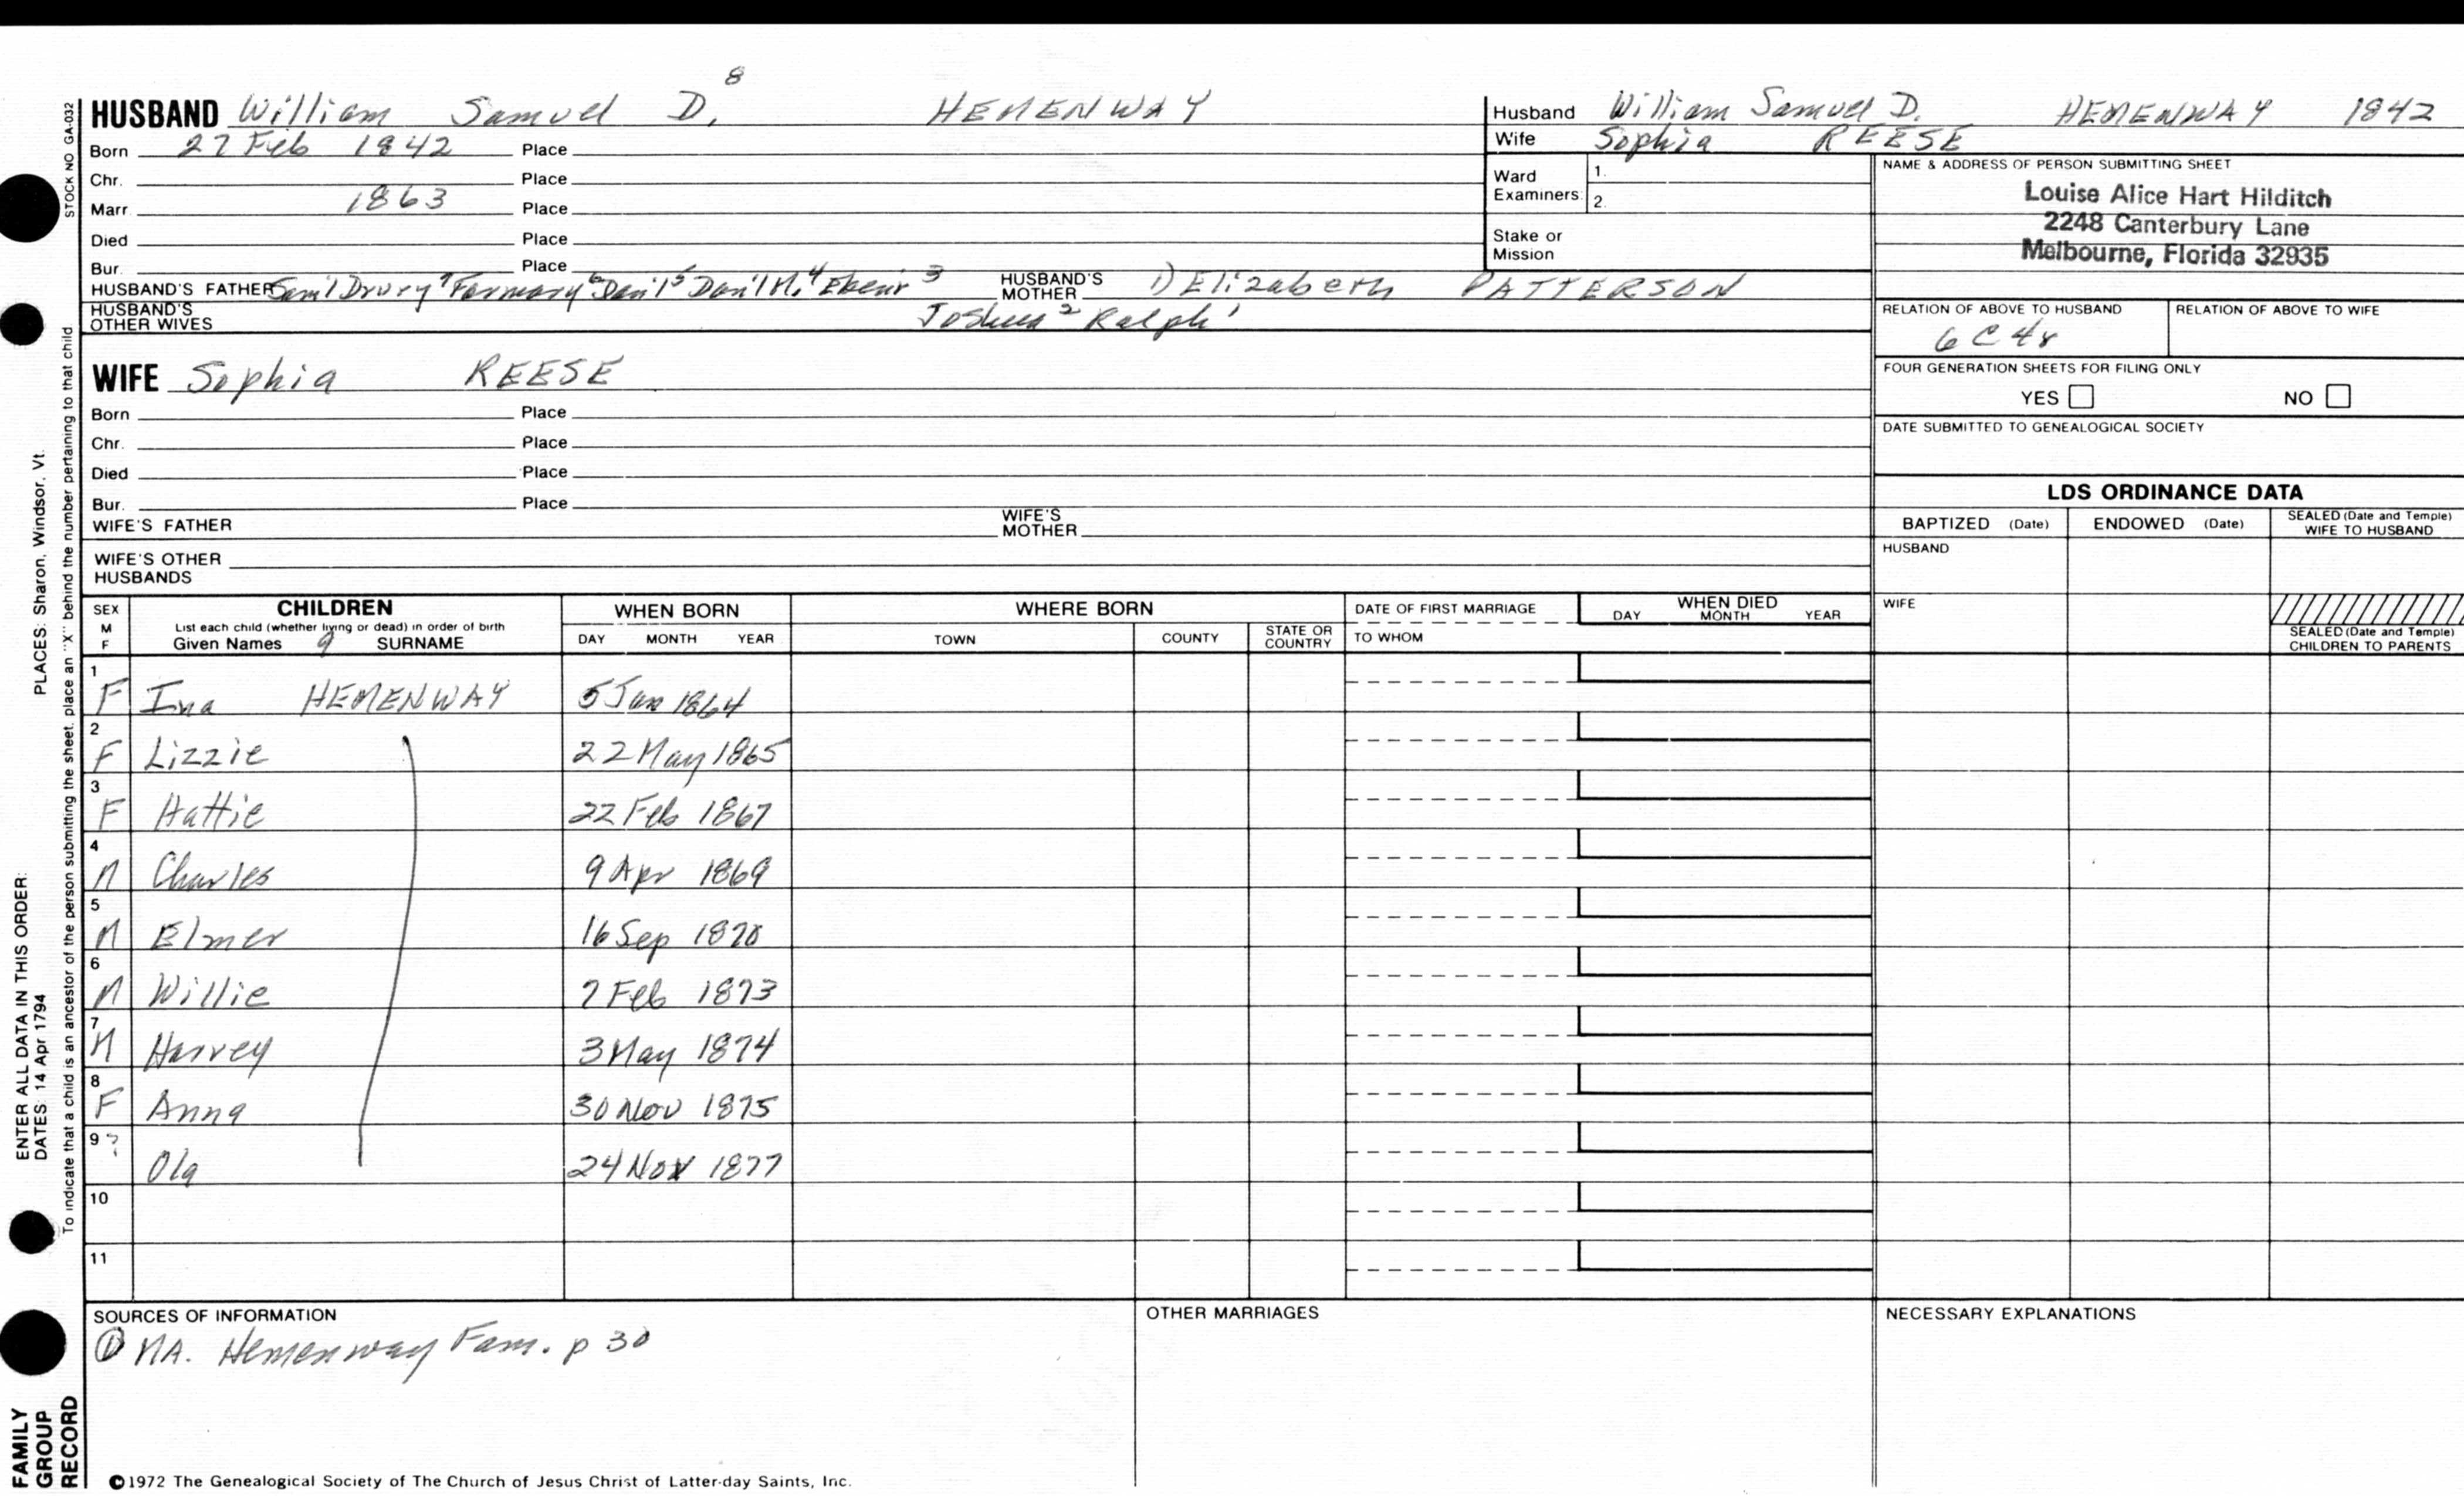 8
HUSBAND William Samuel D. HEMENWAY
Born 27 Feb 1842 Place
Chr. Place
Marr. 1863 Place
Died Place
Bur. Place
HUSBAND'S FATHER Sam'l Drury 7 6 Dan'l 5 Dan'l H. 4 Ebenr 3 HUSBAND'S MOTHER 1) Elizabeth PATTERSON
HUSBAND'S OTHER WIVES Joshua 2 Ralph 1
WIFE Sophia REESE
Born Place
Chr. Place
Died Place
Bur. Place
WIFE'S FATHER WIFE'S MOTHER
WIFE'S OTHER HUSBANDS
Husband William Samuel D. HEMENWAY 1842
Wife Sophia REESE
Ward Examiners: 1.
2.
Stake or Mission
NAME & ADDRESS OF PERSON SUBMITTING SHEET
Louise Alice Hart Hilditch
2248 Canterbury Lane
Melbourne, Florida 32935
RELATION OF ABOVE TO HUSBAND RELATION OF ABOVE TO WIFE
6 C 4r
FOUR GENERATION SHEETS FOR FILING ONLY
YES NO
DATE SUBMITTED TO GENEALOGICAL SOCIETY
LDS ORDINANCE DATA
BAPTIZED (Date) ENDOWED (Date) SEALED (Date and Temple) WIFE TO HUSBAND
HUSBAND
WIFE
SEALED (Date and Temple) CHILDREN TO PARENTS
SEX M F
CHILDREN
List each child (whether living or dead) in order of birth
Given Names 9 SURNAME
WHEN BORN
DAY MONTH YEAR
WHERE BORN
TOWN COUNTY STATE OR COUNTRY
DATE OF FIRST MARRIAGE
TO WHOM
WHEN DIED
DAY MONTH YEAR
1 F Ina HEMENWAY 5 Jan 1864
2 F Lizzie 22 May 1865
3 F Hattie 22 Feb 1867
4 M Charles 9 Apr 1869
5 M Elmer 16 Sep 1870
6 M Willie 7 Feb 1873
7 M Harvey 3 May 1874
8 F Anna 30 Nov 1875
9 ? Ola 24 Nov 1877
10
11
SOURCES OF INFORMATION
① MA. Hemenway Fam. p 30
OTHER MARRIAGES
NECESSARY EXPLANATIONS
©1972 The Genealogical Society of The Church of Jesus Christ of Latter-day Saints, Inc.
STOCK NO GA-032
To indicate that a child is an ancestor of the person submitting the sheet, place an "X" behind the number pertaining to that child
ENTER ALL DATA IN THIS ORDER:
DATES: 14 Apr 1794 PLACES: Sharon, Windsor, Vt.
FAMILY
GROUP
RECORD